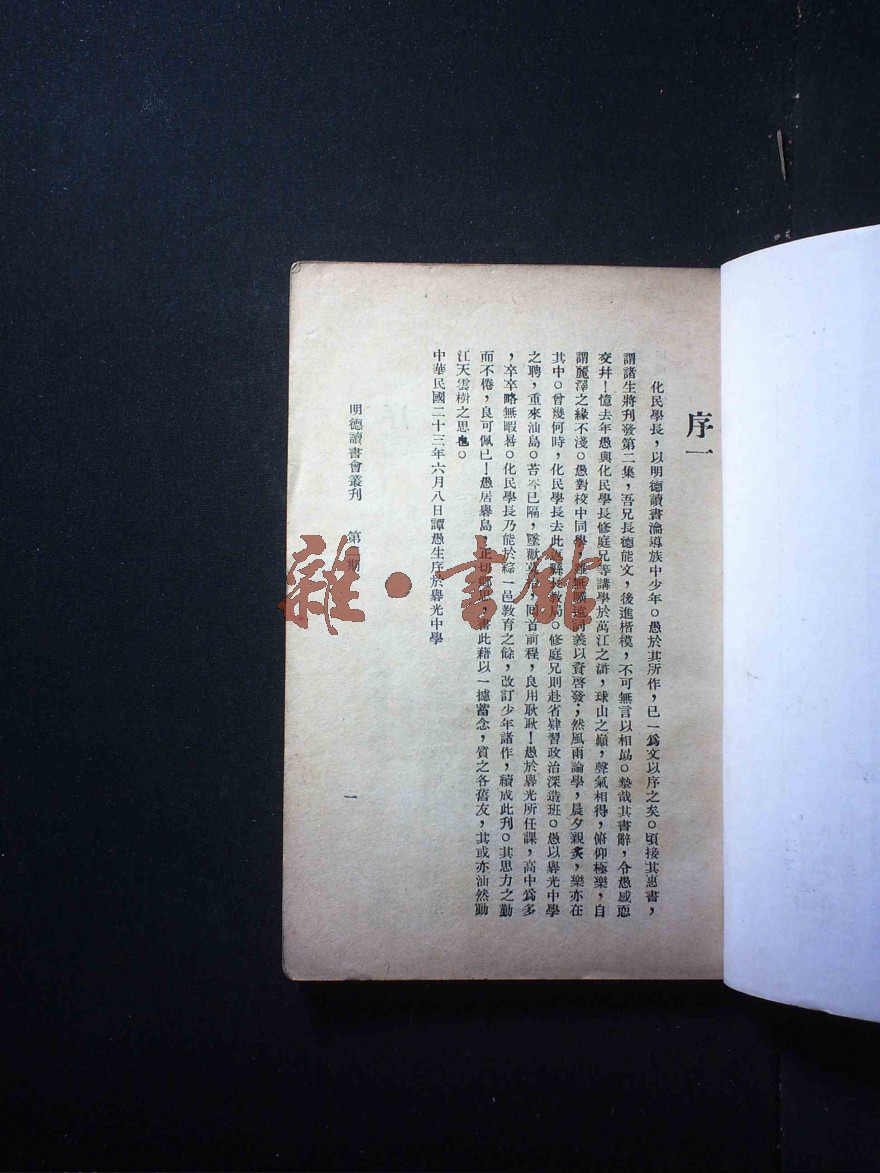 序一
化民學長，以明德讀書淪導族中少年。愚於其所作，已一爲文以序之矣。頃接其惠書，
謂諸生將刊發第二集，吾兄長德能文，後進楷模，不可無言以相勗。摯哉其書辭，令愚感恧
交并！憶去年愚與化民學長修庭兄等講學於萬江之滸，球山之巔，聲氣相得，俯仰極樂，自
謂麗澤之緣不淺。愚對校中同學，雖無 詞義以資啓發；然風雨論學，晨夕親炙，樂亦在
其中。曾幾何時，化民學長去此 長教局。修庭兄則赴省肄習政治深造班。愚以礐光中學
之聘，重來汕島。苔岑已隔，墜歡 ，回首前程，良用耿耿！愚於礐光所任課，高中爲多
，卒卒略無暇晷。化民學長乃能於綜一邑教育之餘，改訂少年諸作，續成此刊。其思力之勤
而不倦，良可佩已！愚居礐島，正切鄉思，書此藉以一攄蓄念，質之各舊友，其或亦油然動
江天雲樹之思也。
中華民國二十三年六月八日譚愚生序於礐光中學
明德讀書會叢刊 第 期
一
雜·書館